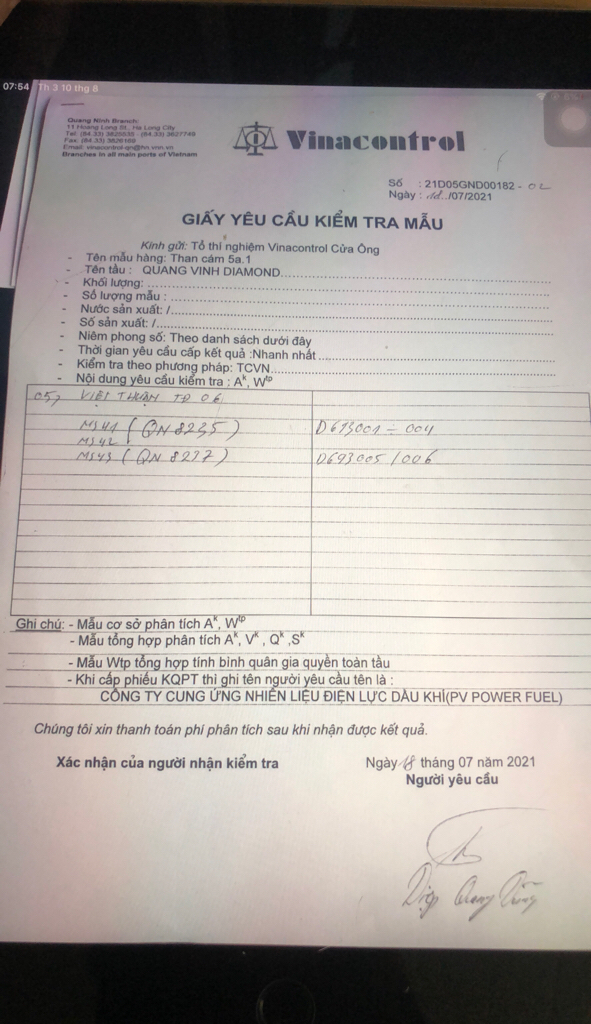 07:54 Th 3 10 thg 8
Quang Ninh Branch:
11 Hoang Long St., Ha Long City
Tel: (84.33) 3825535 - (84.33) 3827749
Fax: (84.33) 3826169
Email: vinacontrol-qn@hn.vnn.vn
Branches in all main ports of Vietnam
Vinacontrol
Số : 21D05GND00182 - 02
Ngày : /07/2021
GIẤY YÊU CẦU KIỂM TRA MẪU
Kính gửi: Tổ thí nghiệm Vinacontrol Cửa Ông
- Tên mẫu hàng: Than cám 5a.1
- Tên tầu : QUANG VINH DIAMOND
- Khối lượng:
- Số lượng mẫu :
- Nước sản xuất: /
- Số sản xuất: /
- Niêm phong số: Theo danh sách dưới đây
- Thời gian yêu cầu cấp kết quả :Nhanh nhất
- Kiểm tra theo phương pháp: TCVN
- Nội dung yêu cầu kiểm tra : Aᵏ, Wᵗᵖ
05, VIỆT THUẬN TĐ 06
MS41 (QN 8235) D693001 ÷ 004
MS42
MS43 (QN 8227) D693005 / 006
Ghi chú: - Mẫu cơ sở phân tích Aᵏ, Wᵗᵖ
- Mẫu tổng hợp phân tích Aᵏ, Vᵏ , Qᵏ ,Sᵏ
- Mẫu Wtp tổng hợp tính bình quân gia quyền toàn tầu
- Khi cấp phiếu KQPT thì ghi tên người yêu cầu tên là :
CÔNG TY CUNG ỨNG NHIÊN LIỆU ĐIỆN LỰC DẦU KHÍ(PV POWER FUEL)
Chúng tôi xin thanh toán phí phân tích sau khi nhận được kết quả.
Xác nhận của người nhận kiểm tra
Ngày 18 tháng 07 năm 2021
Người yêu cầu
Diệp Quang